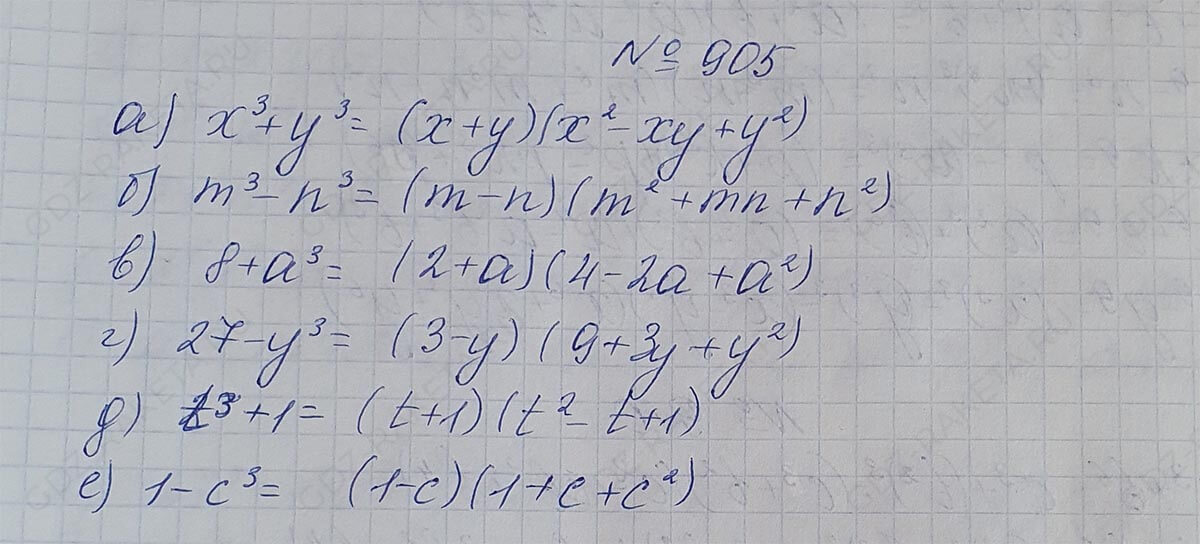 № 905
а) x³+y³= (x+y)(x²-xy+y²)
б) m³-n³= (m-n)(m²+mn+n²)
в) 8+a³= (2+a)(4-2a+a²)
г) 27-y³= (3-y)(9+3y+y²)
д) t³+1= (t+1)(t²-t+1)
е) 1-c³= (1-c)(1+c+c²)